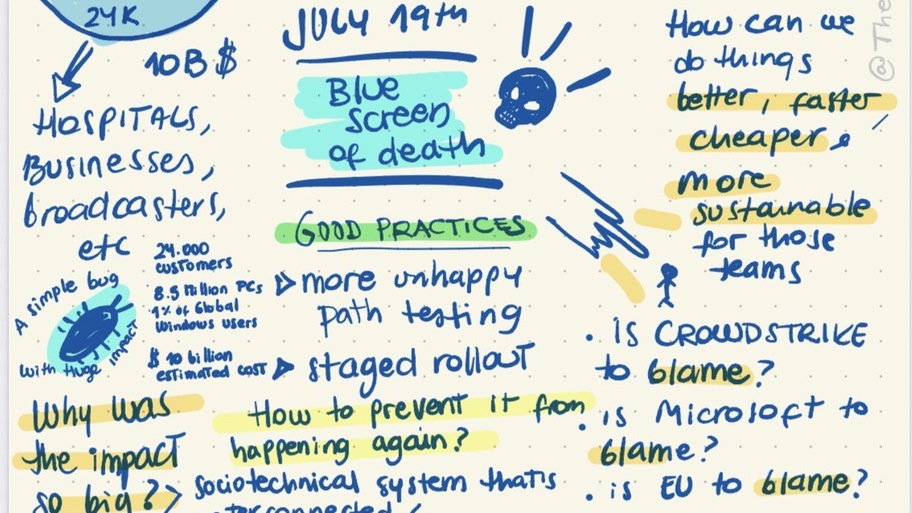 24K
10B $
HOSPITALS,
BUSINESSES,
broadcasters,
etc
A simple bug
with Huge impact
24.000
customers
8.5 Million PCs
1% of Global
Windows users
$ 10 billion
estimated cost
Why was
the impact
so big?
JULY 19th
Blue
screen
of death
GOOD PRACTICES
more unhappy
path testing
staged rollout
How to prevent it from
happening again?
sociotechnical system that's
How can we
do things
better, faster
cheaper,
more
sustainable
for those
teams
@The
. is CROWDSTRIKE
to blame?
. is Microsoft to
blame?
. is EU to blame?